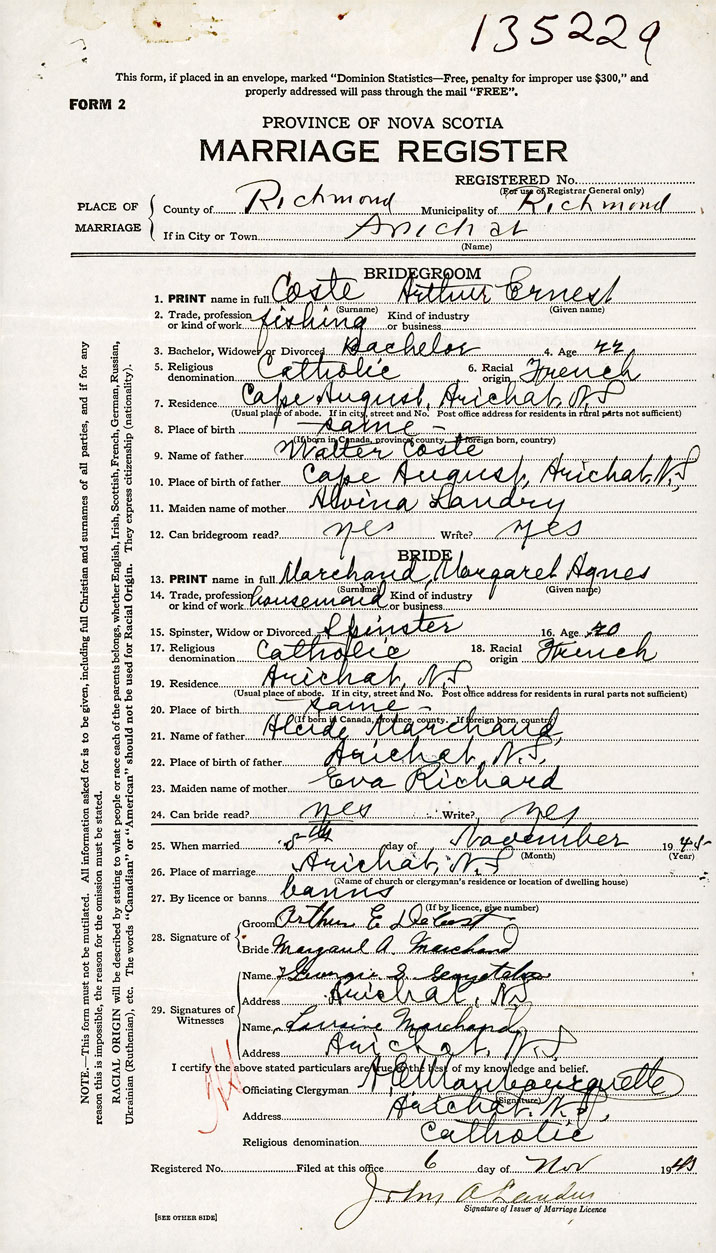 135229
This form, if placed in an envelope, marked "Dominion Statistics—Free, penalty for improper use $300," and
properly addressed will pass through the mail "FREE".
FORM 2
PROVINCE OF NOVA SCOTIA
MARRIAGE REGISTER
REGISTERED No.
(For use of Registrar General only)
PLACE OF MARRIAGE
County of Richmond Municipality of Richmond
If in City or Town Arichat
(Name)
BRIDEGROOM
1. PRINT name in full Coste Arthur Ernest
(Surname) (Given name)
2. Trade, profession or kind of work fishing Kind of industry or business
3. Bachelor, Widower or Divorced Bachelor 4. Age 44
5. Religious denomination Catholic 6. Racial origin French
7. Residence Cape August, Arichat, N.S
(Usual place of abode. If in city, street and No. Post office address for residents in rural parts not sufficient)
8. Place of birth - same -
(If born in Canada, province, county. If foreign born, country)
9. Name of father Walter Coste
10. Place of birth of father Cape August, Arichat, N.S,
11. Maiden name of mother Alvina Landry
12. Can bridegroom read? yes Write? yes
BRIDE
13. PRINT name in full Marchand, Margaret Agnes
(Surname) (Given name)
14. Trade, profession or kind of work housemaid Kind of industry or business
15. Spinster, Widow or Divorced Spinster 16. Age 40
17. Religious denomination Catholic 18. Racial origin French
19. Residence Arichat, N.S
(Usual place of abode. If in city, street and No. Post office address for residents in rural parts not sufficient)
20. Place of birth - same -
(If born in Canada, province, county. If foreign born, country)
21. Name of father Alcide Marchand,
22. Place of birth of father Arichat, N.S,
23. Maiden name of mother Eva Richard
24. Can bride read? yes Write? yes
25. When married 8th day of November 1945
(Month) (Year)
26. Place of marriage Arichat, N.S
(Name of church or clergyman's residence or location of dwelling house)
27. By licence or banns banns
(If by licence, give number)
28. Signature of Groom Arthur E DeCost
Bride Margaret A. Marchand
29. Signatures of Witnesses
Name
Address Arichat, N.S
Name Lorraine Marchand
Address Arichat, N.S
I certify the above stated particulars are true to the best of my knowledge and belief.
Officiating Clergyman
(Signature)
Address Arichat, N.S,
Religious denomination Catholic
Registered No. Filed at this office 6 day of Nov 1945
John A Landry
Signature of Issuer of Marriage Licence
[SEE OTHER SIDE]
NOTE.—This form must not be mutilated. All information asked for is to be given, including full Christian and surnames of all parties, and if for any
reason this is impossible, the reason for the omission must be stated.
RACIAL ORIGIN will be described by stating to what people or race each of the parents belongs, whether English, Irish, Scottish, French, German, Russian,
Ukrainian (Ruthenian), etc. The words "Canadian" or "American" should not be used for Racial Origin. They express citizenship (nationality).